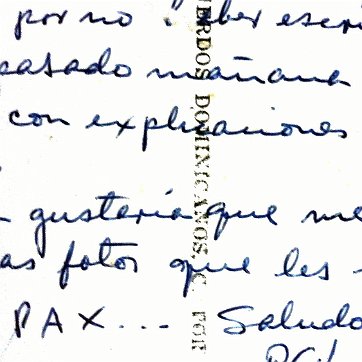 por no
casado mañana
con explicaciones
gustería que me
as fotos que les
PAX... Saludo
ERDOS DOMINICANOS, C. POR